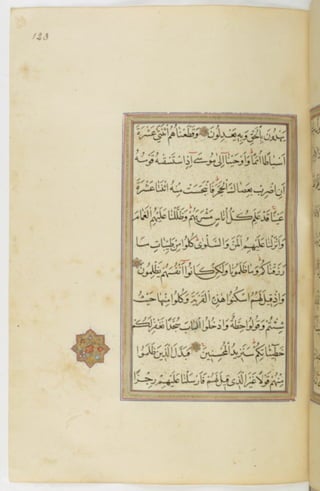 123
يَهْدُونَ بِالْحَقِّ وَبِهِ يَعْدِلُونَ وَقَطَّعْنَاهُمُ اثْنَتَيْ عَشْرَةَ
أَسْبَاطًا أُمَمًا وَأَوْحَيْنَا إِلَى مُوسَى إِذِ اسْتَسْقَيهُ قَوْمُهُ
أَنِ اضْرِبْ بِعَصَاكَ الْحَجَرَ فَانْبَجَسَتْ مِنْهُ اثْنَتَا عَشْرَةَ
عَيْنًا قَدْ عَلِمَ كُلُّ أُنَاسٍ مَشْرَبَهُمْ وَظَلَّلْنَا عَلَيْهِمُ الْغَمَامَ
وَأَنْزَلْنَا عَلَيْهِمُ الْمَنَّ وَالسَّلْوَى كُلُوا مِنْ طَيِّبَاتِ مَا
رَزَقْنَاكُمْ وَمَا ظَلَمُونَا وَلَكِنْ كَانُوا أَنْفُسَهُمْ يَظْلِمُونَ
وَإِذْ قِيلَ لَهُمُ اسْكُنُوا هَذِهِ الْقَرْيَةَ وَكُلُوا مِنْهَا حَيْثُ
شِئْتُمْ وَقُولُوا حِطَّةٌ وَادْخُلُوا الْبَابَ سُجَّدًا نَغْفِرْ لَكُمْ
خَطِيئَاتِكُمْ سَنَزِيدُ الْمُحْسِنِينَ فَبَدَّلَ الَّذِينَ ظَلَمُوا
مِنْهُمْ قَوْلًا غَيْرَ الَّذِي قِيلَ لَهُمْ فَأَرْسَلْنَا عَلَيْهِمْ رِجْزًا